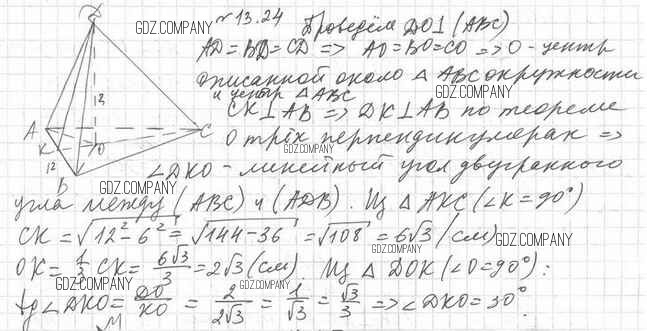 № 13.24 Проведём DO⊥(ABC)
AD=BD=CD => AO=BO=CO => O - центр
описанной около △ ABC окружности
и центр △ ABC
CK⊥AB => DK⊥AB по теореме
о трёх перпендикулярах =>
∠DKO - линейный угол двугранного
угла между (ABC) и (ADB). Из △ AKC (∠K=90°)
CK = √12²-6² = √144-36 = √108 = 6√3 (см)
OK = 1/3 CK = 6√3/3 = 2√3 (см). Из △ DOK (∠O=90°):
tg ∠DKO = DO/KO = 2/2√3 = 1/√3 = √3/3 => ∠DKO = 30°.
D
A
K
O
C
12
B
GDZ.COMPANY
GDZ.COMPANY
GDZ.COMPANY
GDZ.COMPANY
GDZ.COMPANY
GDZ.COMPANY
GDZ.COMPANY
GDZ.COMPANY
GDZ.COMPANY
GDZ.COMPANY